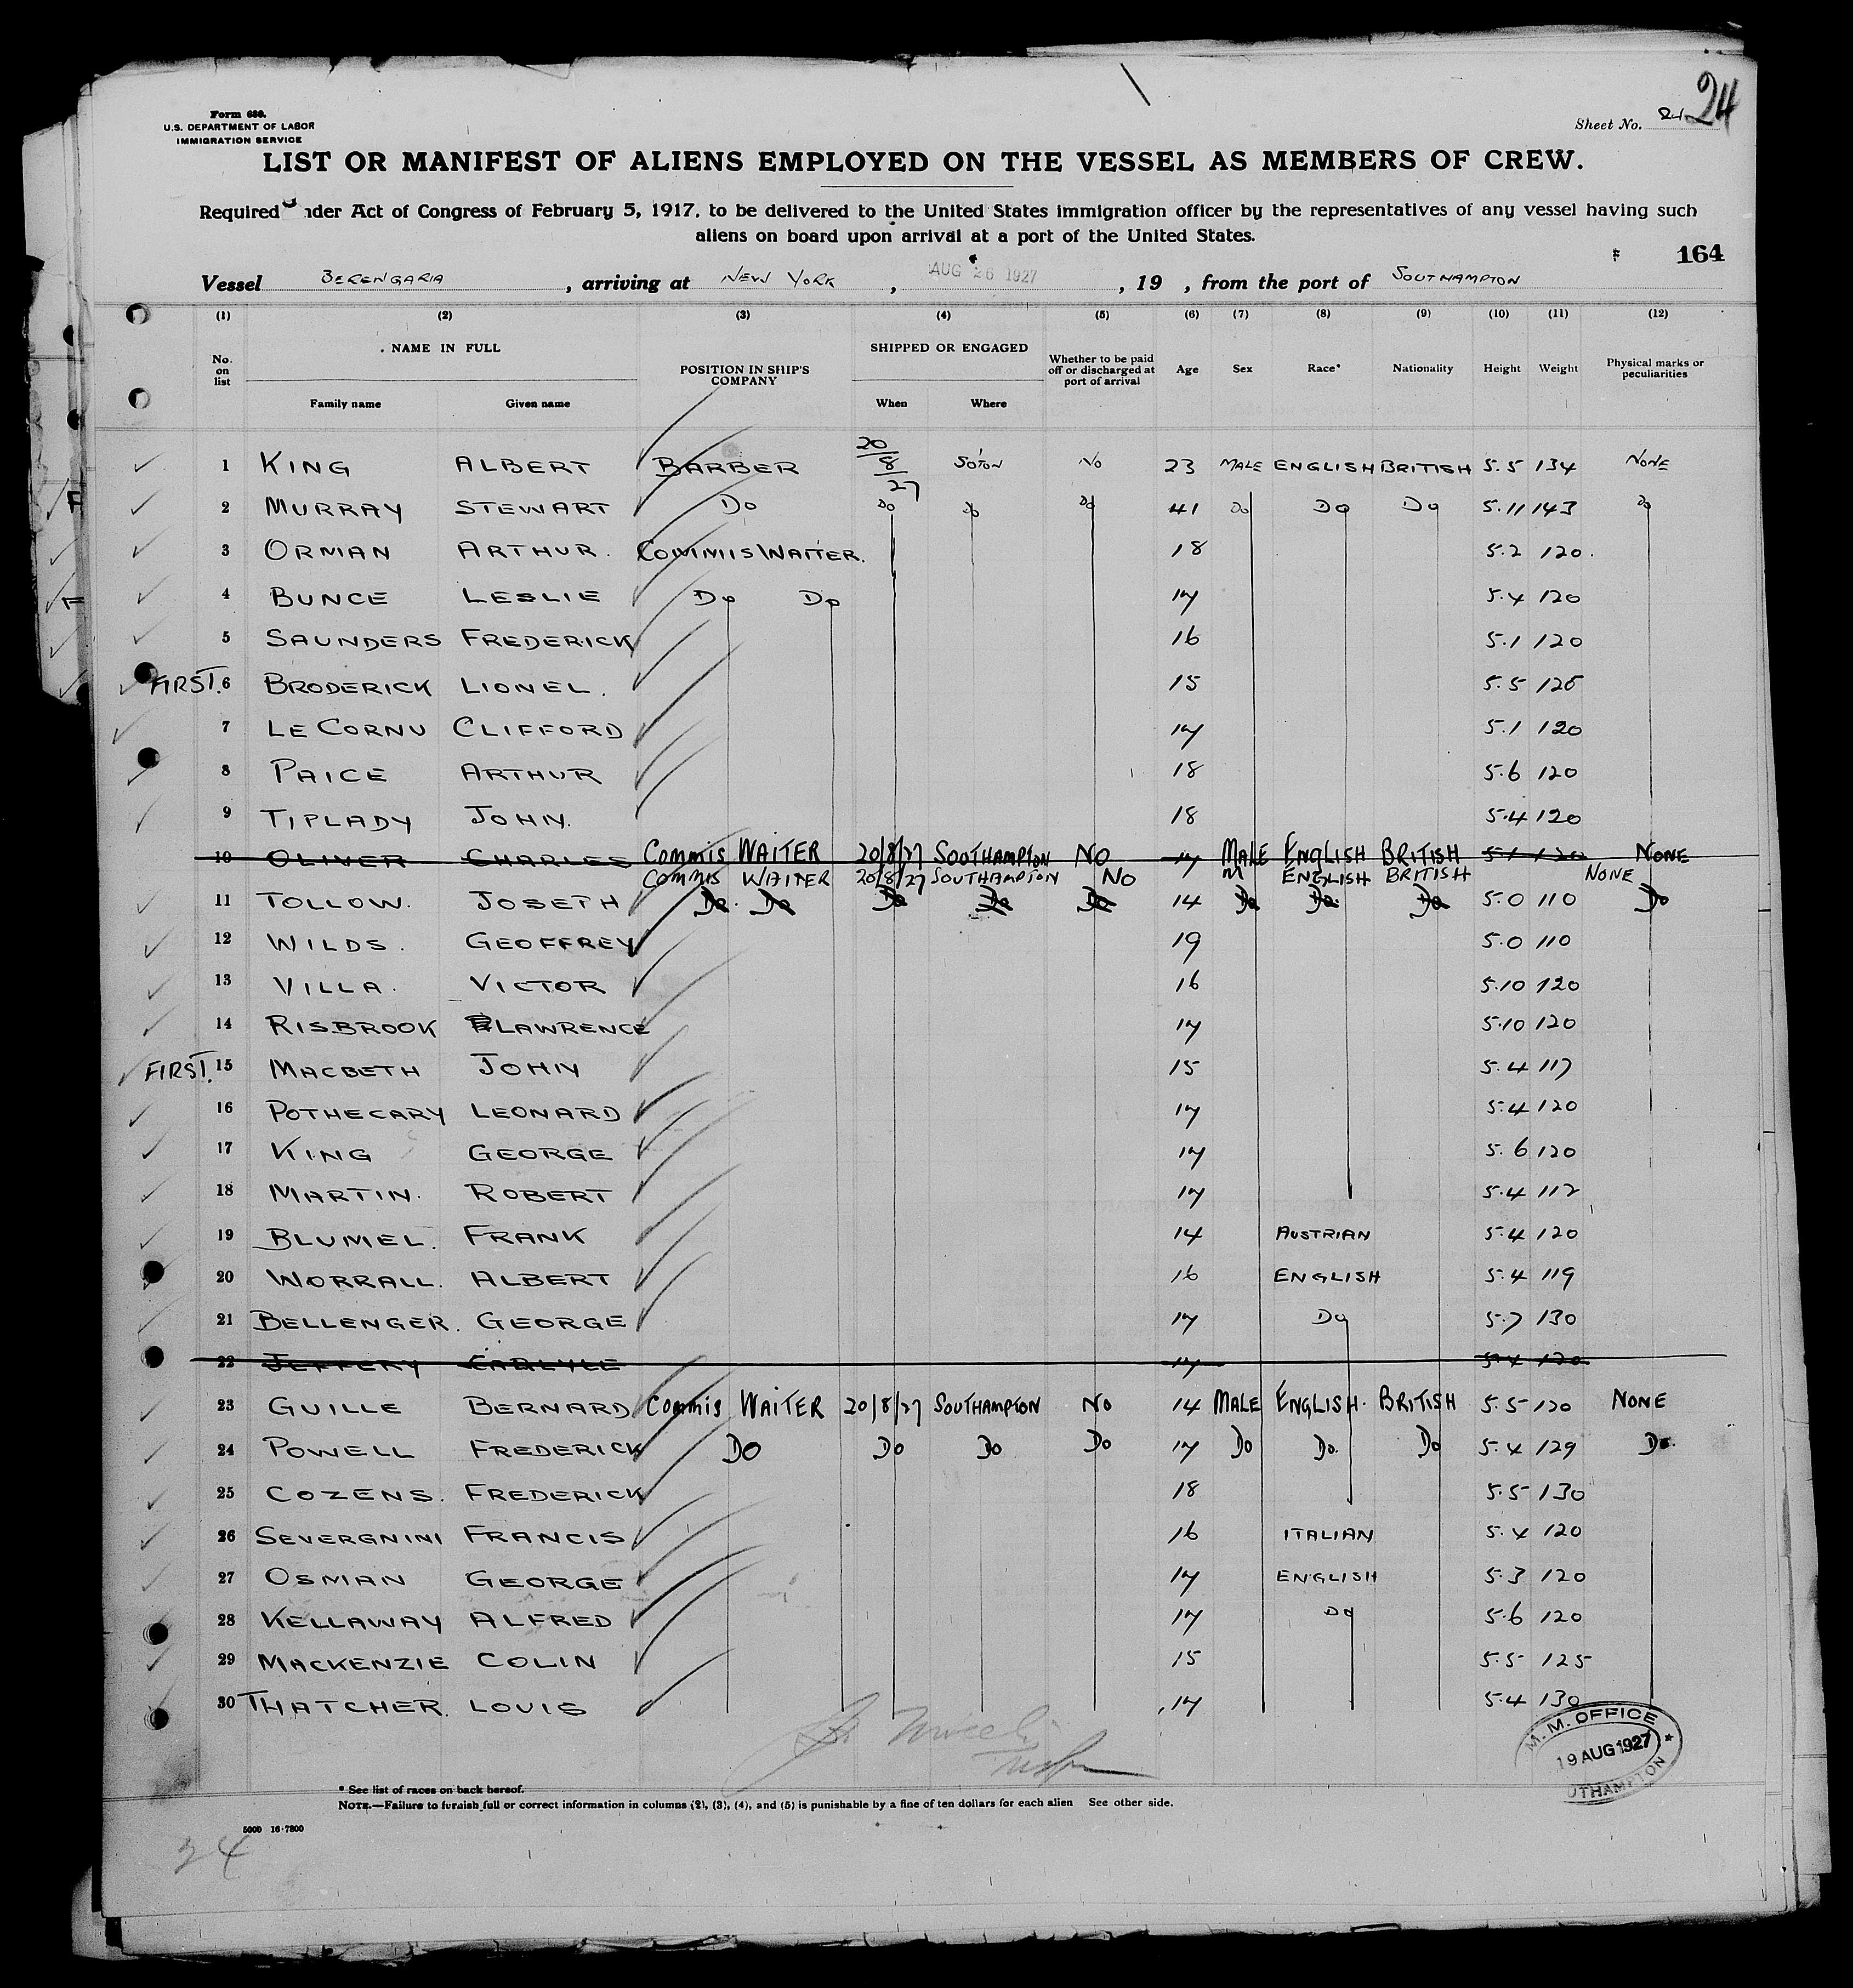 24
Form 680.
U.S. DEPARTMENT OF LABOR
IMMIGRATION SERVICE
Sheet No. 24
LIST OR MANIFEST OF ALIENS EMPLOYED ON THE VESSEL AS MEMBERS OF CREW.
Required nder Act of Congress of February 5, 1917, to be delivered to the United States immigration officer by the representatives of any vessel having such
aliens on board upon arrival at a port of the United States.
164
Vessel BERENGARIA, arriving at NEW YORK, AUG 26 1927, 19 , from the port of SOUTHAMPTON
(1) (2) (3) (4) (5) (6) (7) (8) (9) (10) (11) (12)
No. on list NAME IN FULL Family name Given name POSITION IN SHIP'S COMPANY SHIPPED OR ENGAGED When Where Whether to be paid off or discharged at port of arrival Age Sex Race* Nationality Height Weight Physical marks or peculiarities
1 KING ALBERT BARBER 20/8/27 SO'TON NO 23 MALE ENGLISH BRITISH 5.5 134 NONE
2 MURRAY STEWART DO DO DO DO 41 DO DO DO 5.11 143 DO
3 ORMAN ARTHUR. COMMIS WAITER. 18 5.2 120.
4 BUNCE LESLIE DO DO 17 5.4 120
5 SAUNDERS FREDERICK 16 5.1 120
FIRST. 6 BRODERICK LIONEL. 15 5.5 125
7 LE CORNU CLIFFORD 17 5.1 120
8 PAICE ARTHUR 18 5.6 120
9 TIPLADY JOHN. 18 5.4 120
10 OLIVER CHARLES COMMIS WAITER 20/8/27 SOUTHAMPTON NO 17 MALE ENGLISH BRITISH 5.1 120 NONE
COMMIS WAITER 20/8/27 SOUTHAMPTON NO M ENGLISH BRITISH NONE
11 TOLLOW. JOSEPH DO. DO DO DO DO 14 DO DO. DO 5.0 110 DO
12 WILDS. GEOFFREY 19 5.0 110
13 VILLA. VICTOR 16 5.10 120
14 RISBROOK LAWRENCE 17 5.10 120
FIRST. 15 MACBETH JOHN 15 5.4 117
16 POTHECARY LEONARD 17 5.4 120
17 KING GEORGE 17 5.6 120
18 MARTIN. ROBERT 17 5.4 112
19 BLUMEL. FRANK 14 AUSTRIAN 5.4 120
20 WORRALL. ALBERT 16 ENGLISH 5.4 119
21 BELLENGER. GEORGE 17 DO 5.7 130
22 JEFFERY CARLYLE 17 5.4 120
23 GUILLE BERNARD COMMIS WAITER 20/8/27 SOUTHAMPTON NO 14 MALE ENGLISH. BRITISH 5.5 120 NONE
24 POWELL FREDERICK DO DO DO DO 17 DO DO. DO 5.4 129 DO.
25 COZENS. FREDERICK 18 5.5 130
26 SEVERGNINI FRANCIS 16 ITALIAN 5.4 120
27 OSMAN GEORGE 17 ENGLISH 5.3 120
28 KELLAWAY ALFRED 17 DO 5.6 120
29 MACKENZIE COLIN 15 5.5 125
30 THATCHER. LOUIS 17 5.4 130
M. M. OFFICE
19 AUG 1927
UTHAMPTON
* See list of races on back hereof.
NOTE.—Failure to furnish full or correct information in columns (2), (3), (4), and (5) is punishable by a fine of ten dollars for each alien See other side.
5000 16-7800
24